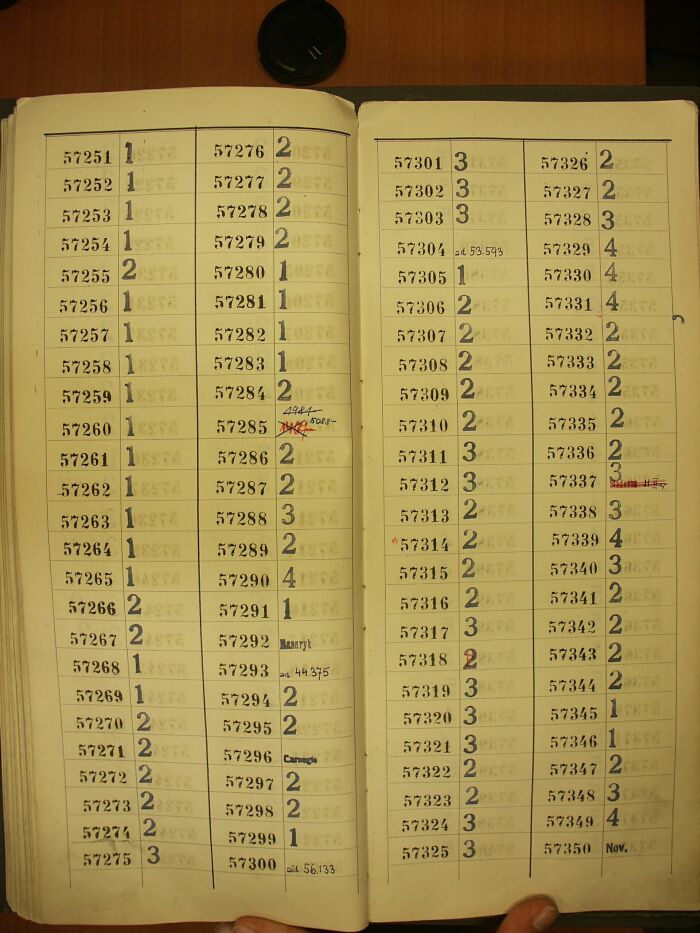 57251 1
57252 1
57253 1
57254 1
57255 2
57256 1
57257 1
57258 1
57259 1
57260 1
57261 1
57262 1
57263 1
57264 1
57265 1
57266 2
57267 2
57268 1
57269 1
57270 2
57271 2
57272 2
57273 2
57274 2
57275 3
57276 2
57277 2
57278 2
57279 2
57280 1
57281 1
57282 1
57283 1
57284 2
4984
57285 5088
57286 2
57287 2
57288 3
57289 2
57290 4
57291 1
57292 Masaryk
57293 44.375
57294 2
57295 2
57296 Carnegie
57297 2
57298 2
57299 1
57300 56.133
57301 3
57302 3
57303 3
57304 53.593
57305 1
57306 2
57307 2
57308 2
57309 2
57310 2
57311 3
57312 3
57313 2
57314 2
57315 2
57316 2
57317 3
57318 2
57319 3
57320 3
57321 3
57322 2
57323 2
57324 3
57325 3
57326 2
57327 2
57328 3
57329 4
57330 4
57331 4
57332 2
57333 2
57334 2
57335 2
57336 2
57337 3
57338 3
57339 4
57340 3
57341 2
57342 2
57343 2
57344 2
57345 1
57346 1
57347 2
57348 3
57349 4
57350 Nov.